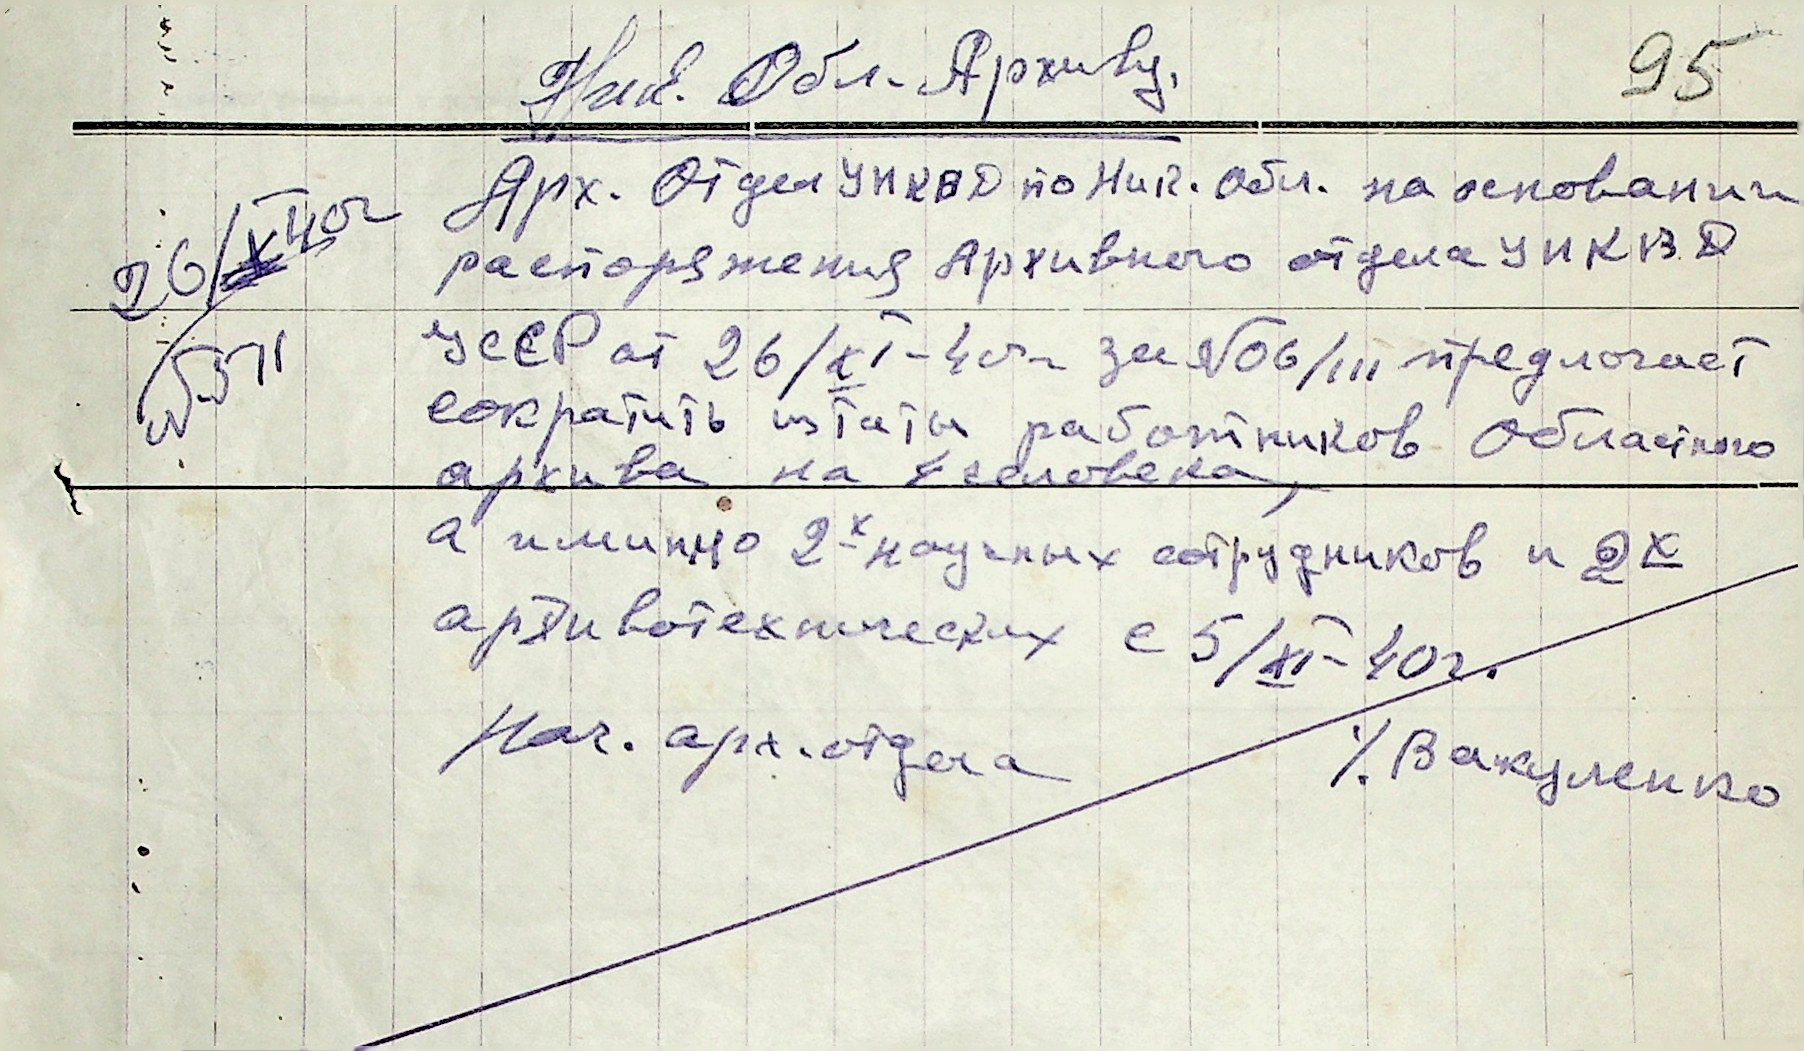 Ник. Обл. Архиву.
95
Арх. Отдел УНКВД по Ник. Обл. на основании
распоряжения Архивного отдела УНКВД
26/X 40г
УССР от 26/XI-40г за №06/III предлогает
№ 311
сократить штаты работников Областного
архива на 4 человека,
а иминно 2х научных сотрудников и 2х
архивотехнических с 5/XI-40г.
Нач. арх. отдела /. Вакуленко